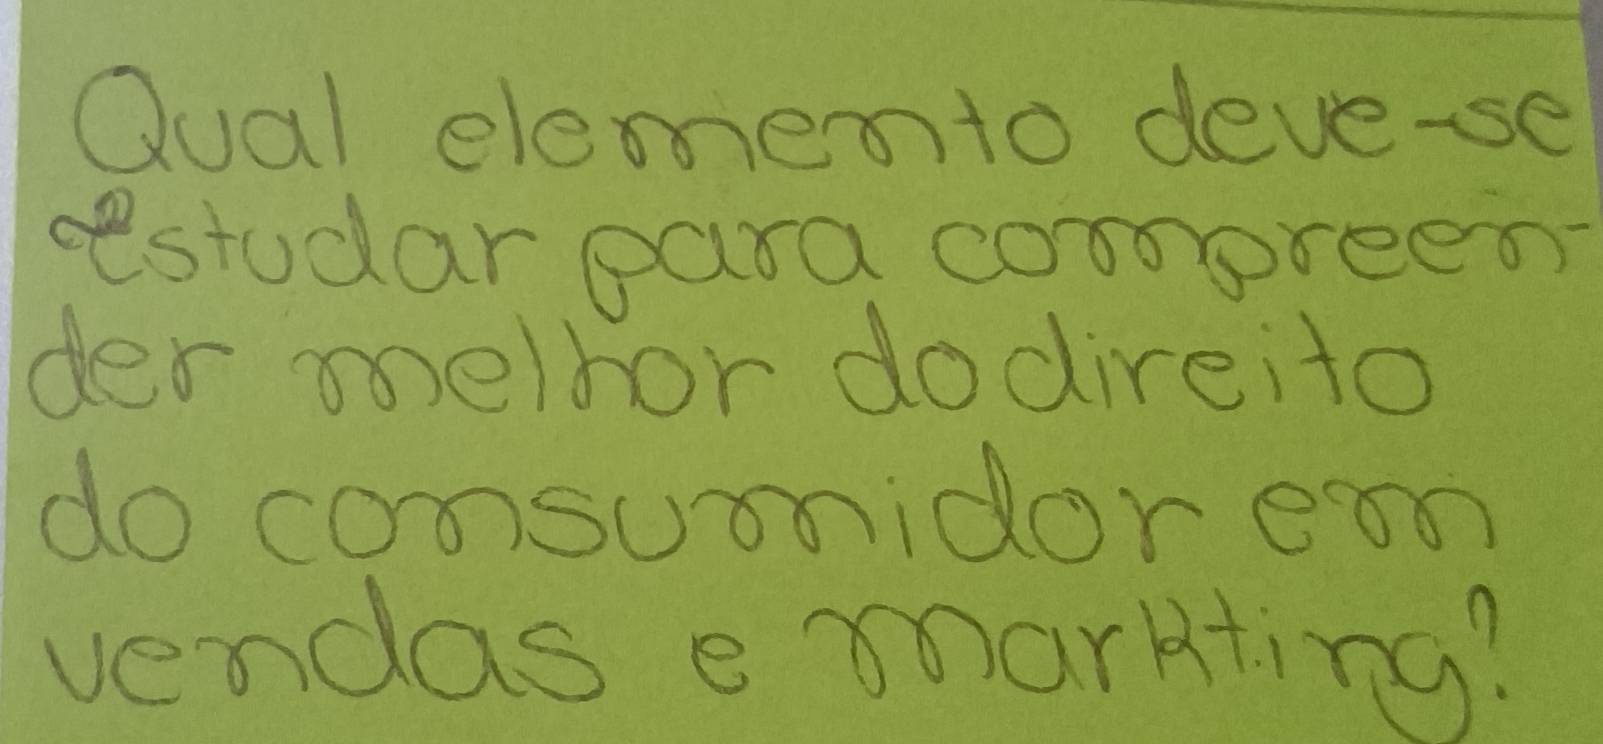 Qual elemento deve-se
estudar para compreen-
der melhor do direito
do consumidor em
vendas e markting?